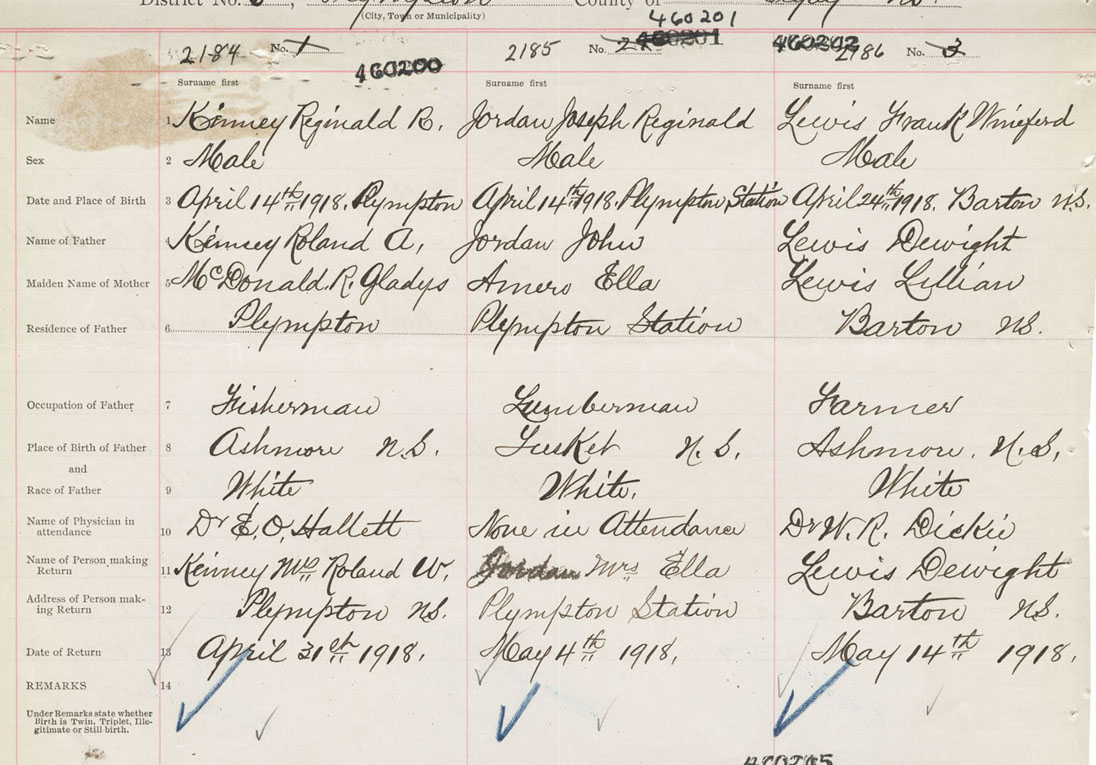 District No. County of
(City, Town or Municipality)
460201
2184 No. 1 2185 No. 2 460201 460202 2186 No. 3
460200
Surname first Surname first Surname first
Name 1 Kinney Reginald R. Jordan Joseph Reginald Lewis Frank Wineferd
Sex 2 Male Male Male
Date and Place of Birth 3 April 14th 1918. Plympton April 14th 1918. Plympton Station April 24th 1918. Barton N.S.
Name of Father 4 Kinney Roland A, Jordan John Lewis Dewight
Maiden Name of Mother 5 McDonald. R. Gladys Amero Ella Lewis Lillian
Residence of Father 6 Plympton Plympton Station Barton NS.
Occupation of Father 7 Fisherman Lumberman Farmer
Place of Birth of Father 8 Ashmore N.S. Tusket N.S. Ashmore. N.S.
and
Race of Father 9 White White. White
Name of Physician in
attendance 10 Dr E. O. Hallett None in Attendance Dr W. R. Dickie
Name of Person making
Return 11 Kinney Mrs Roland W. Jordan Mrs Ella Lewis Dewight
Address of Person mak-
ing Return 12 Plympton NS. Plympton Station Barton NS.
Date of Return 13 April 31st 1918. May 4th 1918. May 14th 1918.
REMARKS 14
Under Remarks state whether
Birth is Twin, Triplet, Ille-
gitimate or Still-birth.